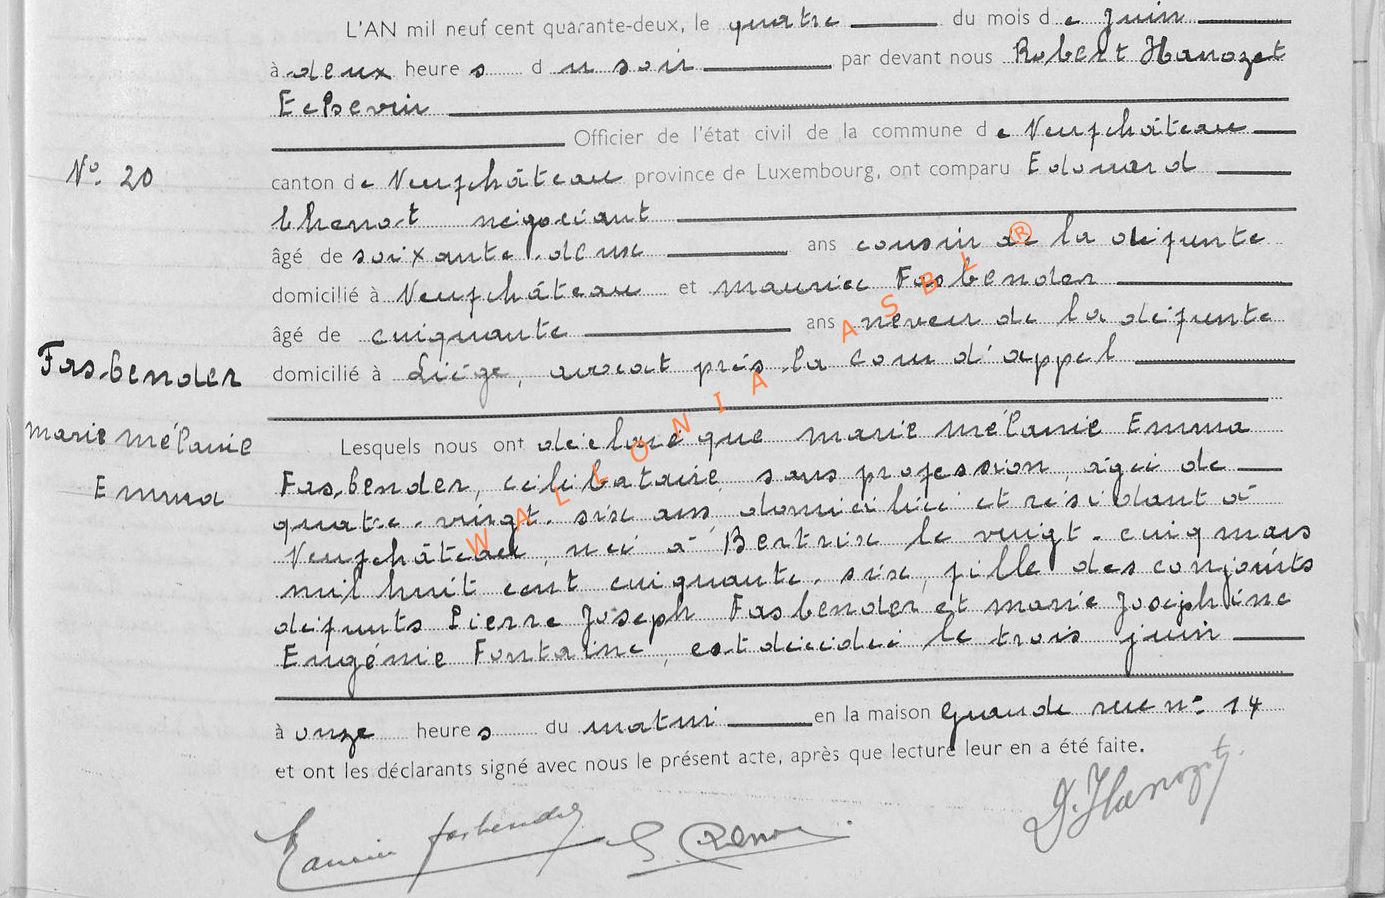 L'AN mil neuf cent quarante-deux, le quatre du mois de Juin
à deux heures du soir par devant nous Robert Hanozet
Echevin
Officier de l'état civil de la commune de Neufchâteau
N° 20
canton de Neufchâteau province de Luxembourg, ont comparu Edouard
négociant
âgé de soixante-deux ans cousin de la défunte
domicilié à Neufchâteau et Maurice Fasbender
âgé de cinquante ans neveu de la défunte
Fasbender
domicilié à Liége, avocat près la cour d'appel
Marie Mélanie
Emma
Lesquels nous ont déclaré que Marie Mélanie Emma
Fasbender, célibataire, sans profession, âgée de
quatre-vingt-six ans, domiciliée et résidant à
Neufchâteau, née à Bertrix le vingt-cinq mars
mil huit cent cinquante-six, fille des conjoints
défunts Pierre Joseph Fasbender et Marie Joséphine
Eugénie Fontaine, est décédée le trois juin
à onze heures du matin en la maison Grande rue n° 14
et ont les déclarants signé avec nous le présent acte, après que lecture leur en a été faite.
Fasbender
Hanozet
WALLONIA ASBL ®